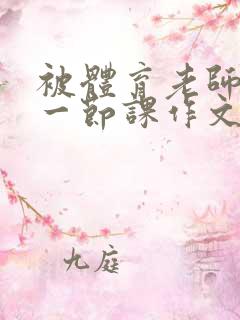 被體育老師
一節課作文
九庭